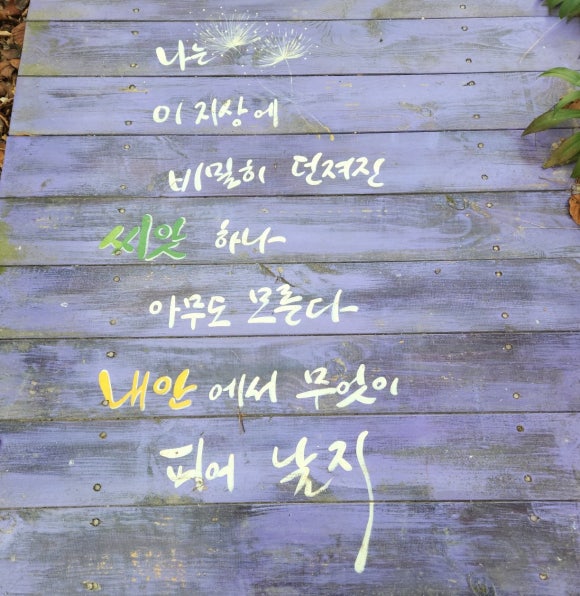 나는
이 지상에
비밀히 던져진
씨앗 하나
아무도 모른다
내안에서 무엇이
피어 날지